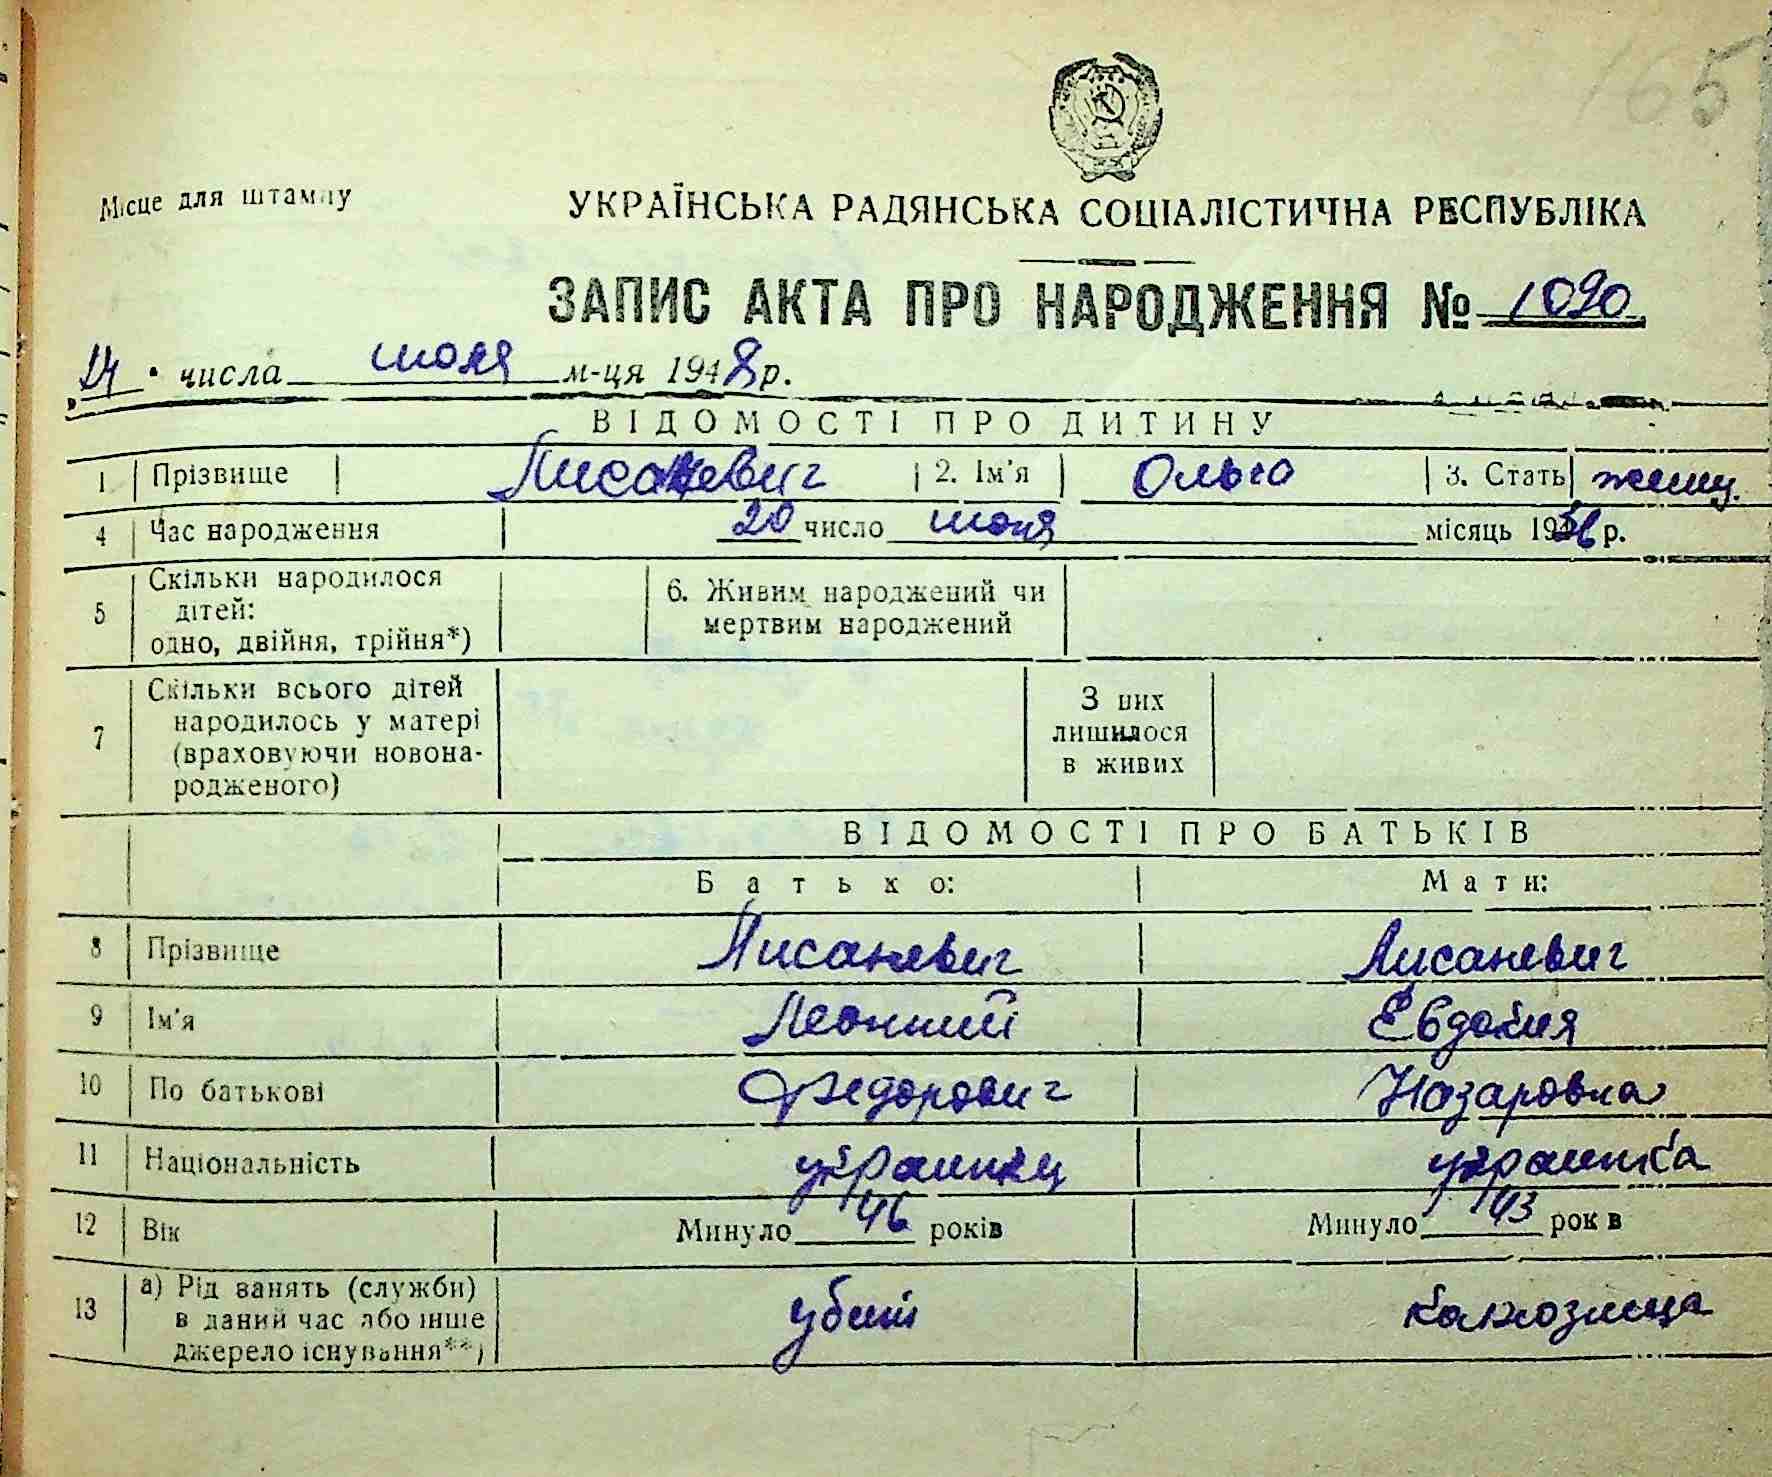 165
Місце для штампу
УКРАЇНСЬКА РАДЯНСЬКА СОЦІАЛІСТИЧНА РЕСПУБЛІКА
ЗАПИС АКТА ПРО НАРОДЖЕННЯ № 1090
24 числа июля м-ця 1948 р.
ВІДОМОСТІ ПРО ДИТИНУ
1 Прізвище Лисаневич 2. Ім'я Ольга 3. Стать женщ.
4 Час народження 20 число июня місяць 1936 р.
5 Скільки народилося дітей: одно, двійня, трійня*) 6. Живим народжений чи мертвим народжений
7 Скільки всього дітей народилось у матері (враховуючи новонародженого) З них лишилося в живих
ВІДОМОСТІ ПРО БАТЬКІВ
Батько: Мати:
8 Прізвище Лисаневич Лисаневич
9 Ім'я Леонтий Евдокия
10 По батькові Федорович Назаровна
11 Національність украинец украинка
12 Вік Минуло 46 років Минуло 43 років
13 а) Рід занять (служби) в даний час або інше джерело існування**) убит колхозница